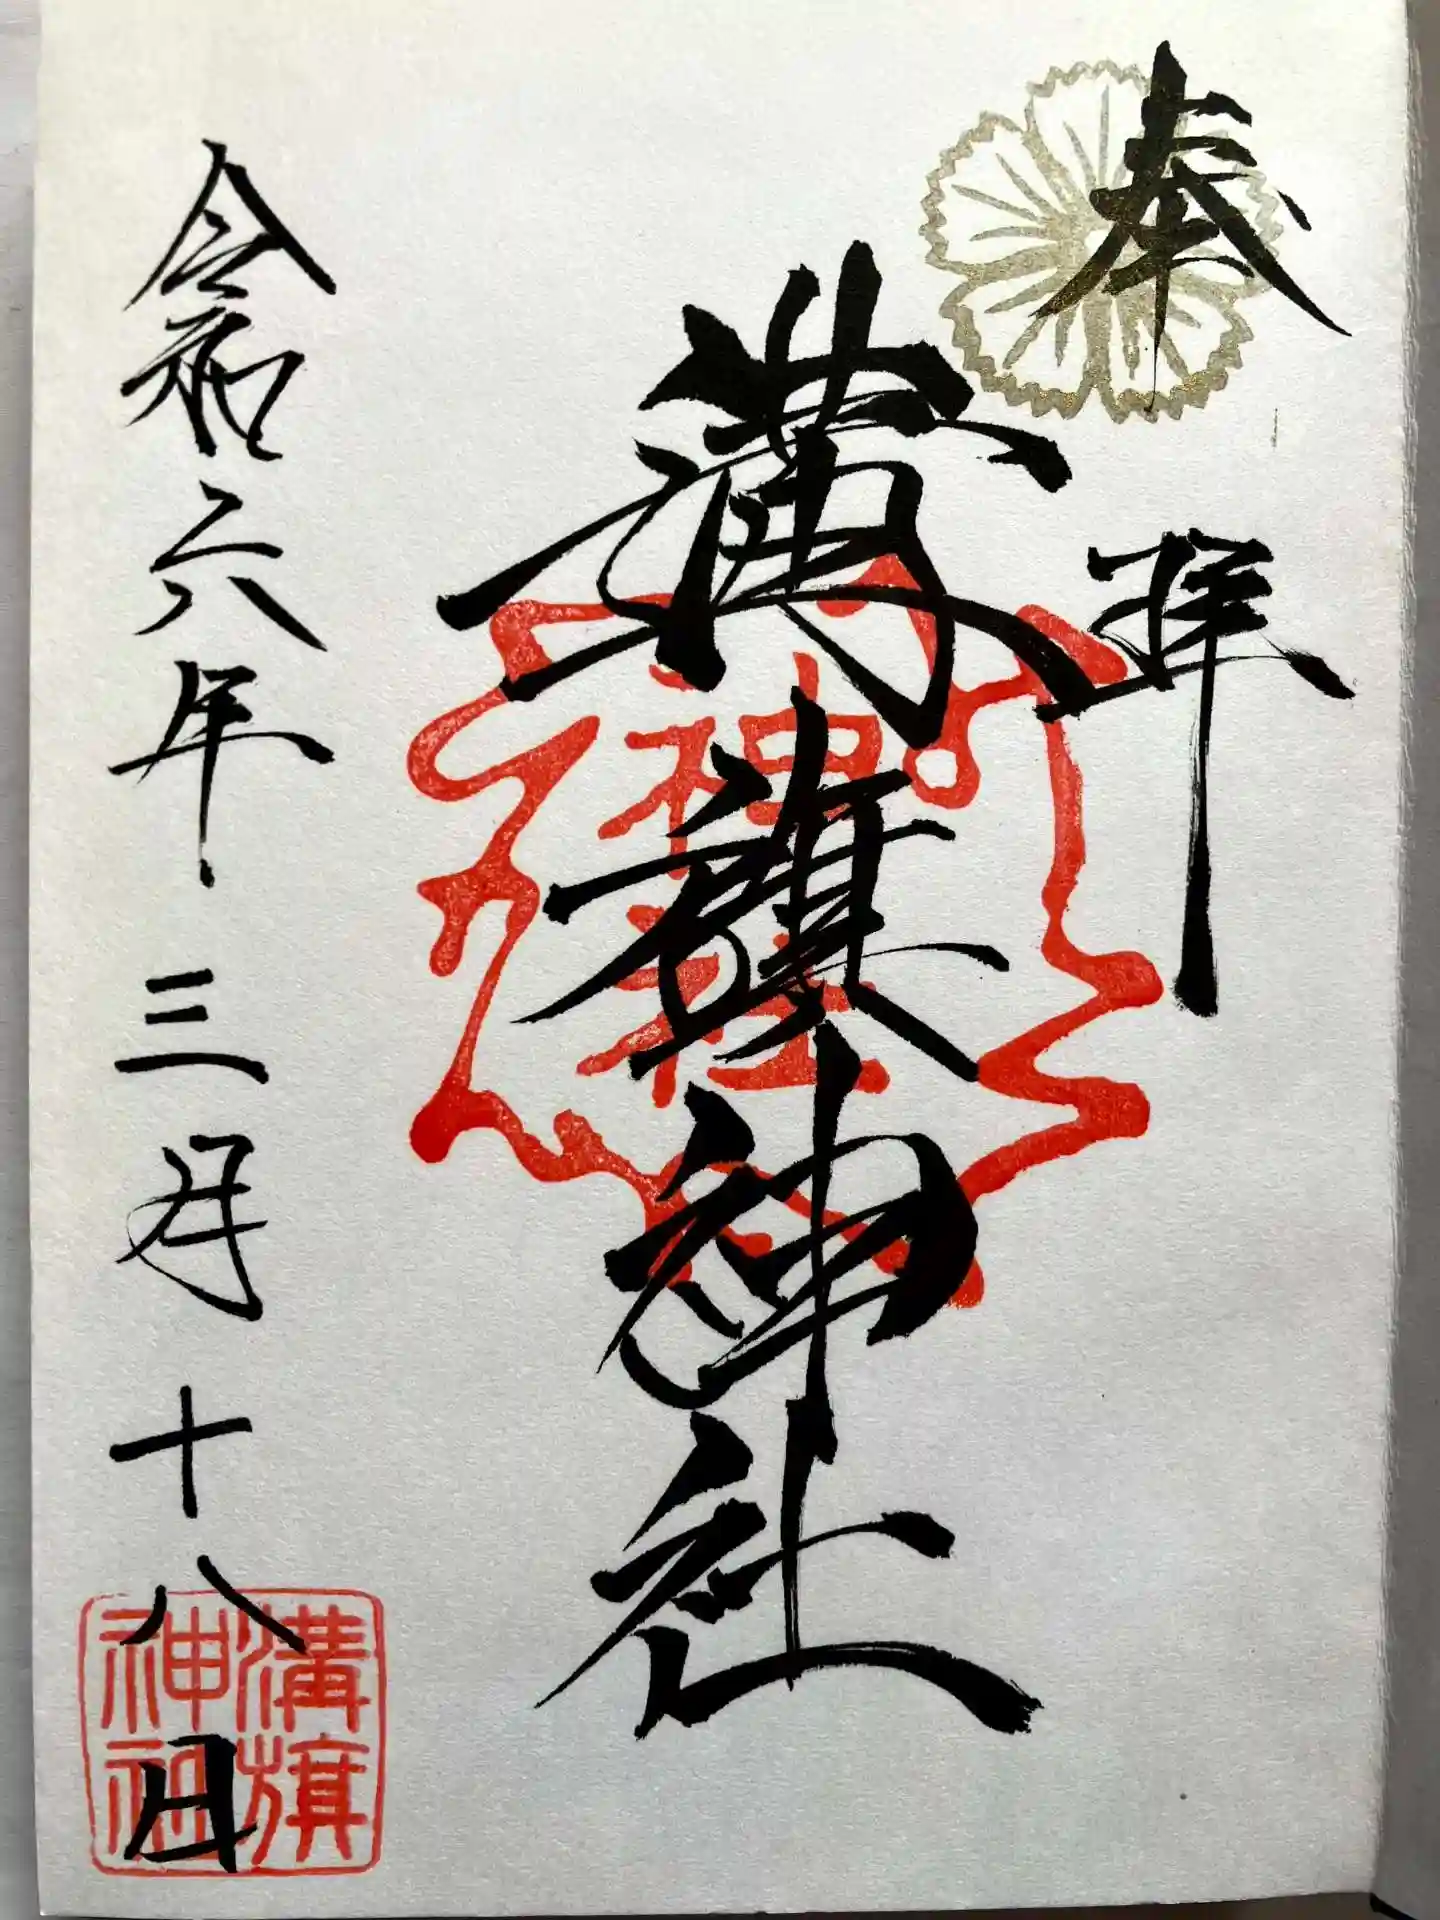 奉拝
溝旗神社
神社
令和六年三月十八日
溝旗
神社